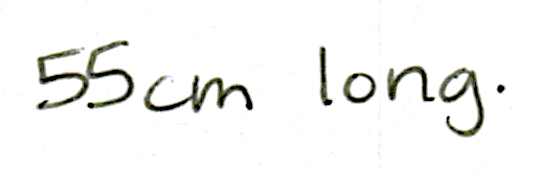 55cm long.